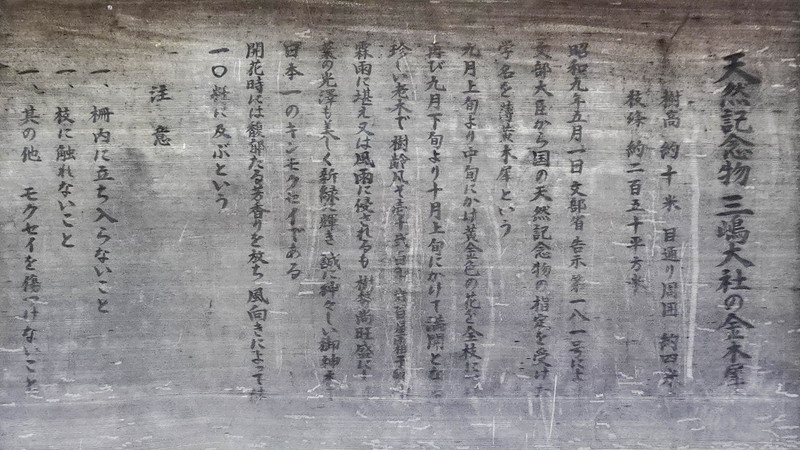 天然記念物 三嶋大社の金木犀
樹高 約十米 目通り周囲 約四米
枝條 約二百五十平方米
昭和九年五月一日 文部省告示第一八一号により
文部大臣から国の天然記念物の指定を受けた
学名を薄黄木犀という
九月上旬より中旬にかけ黄金色の花を全枝に
再び九月下旬より十月上旬にかけて満開となる
珍しい老木で 樹齢凡そ壱千弐百年
霖雨に堪え又は風雨に侵されるも 樹勢尚旺盛に
葉の光沢も美しく新緑に輝き 誠に神々しい御神木
日本一のキンモクセイである
開花時には馥郁たる芳香りを放ち 風向きによっては
一〇粁に及ぶという
注意
一、柵内に立ち入らないこと
一、枝に触れないこと
一、其の他 モクセイを傷つけないこと